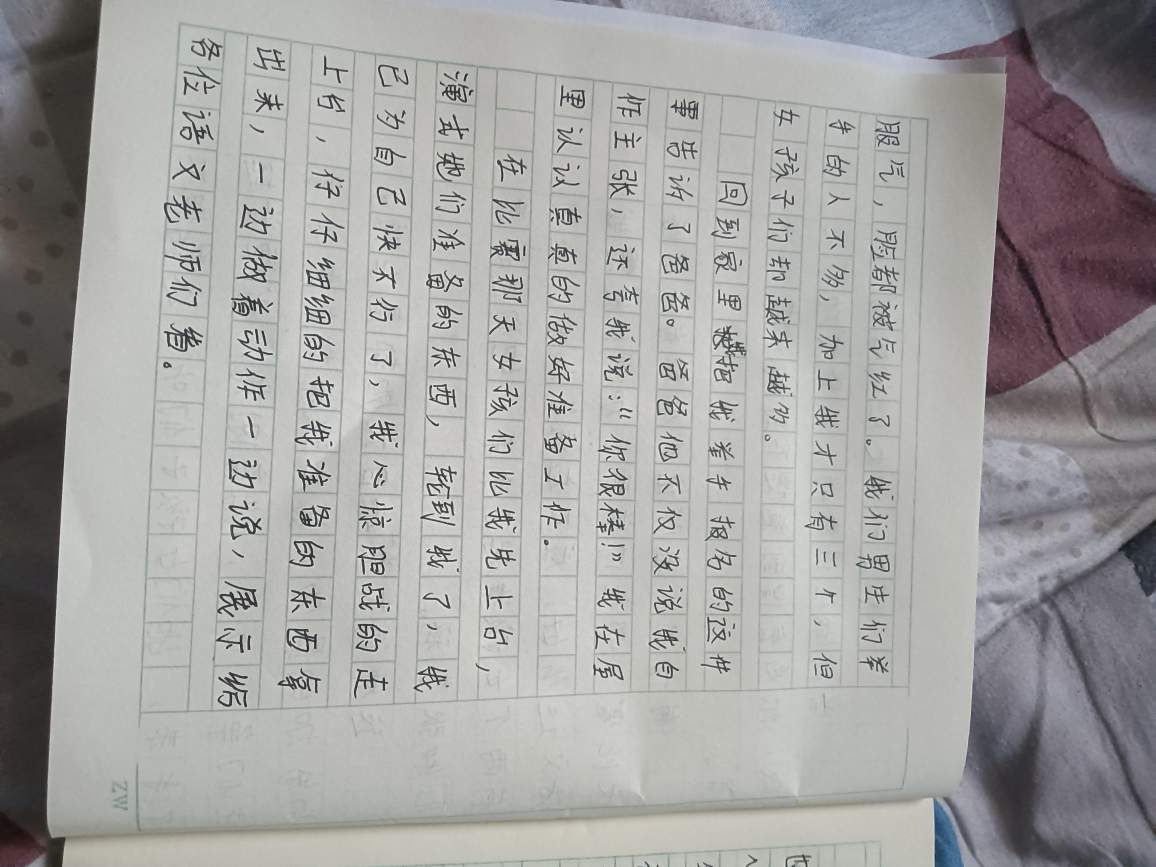 服气，脸都被气红了。我们男生们举
手的人不多，加上我才只有三个，但
女孩子们却越来越多。
回到家里把我举手报名的这件
事告诉了爸爸。爸爸他不仅没说我自
作主张，还夸我说：“你很棒！”我在屋
里认认真真的做好准备工作。
在比赛那天女孩们比我先上台，
演式她们准备的东西，轮到我了，我
已为自己快不行了，我心惊胆战的走
上台，仔仔细细的把我准备的东西拿
出来，一边做着动作一边说，展示给
各位语文老师们看。
ZW